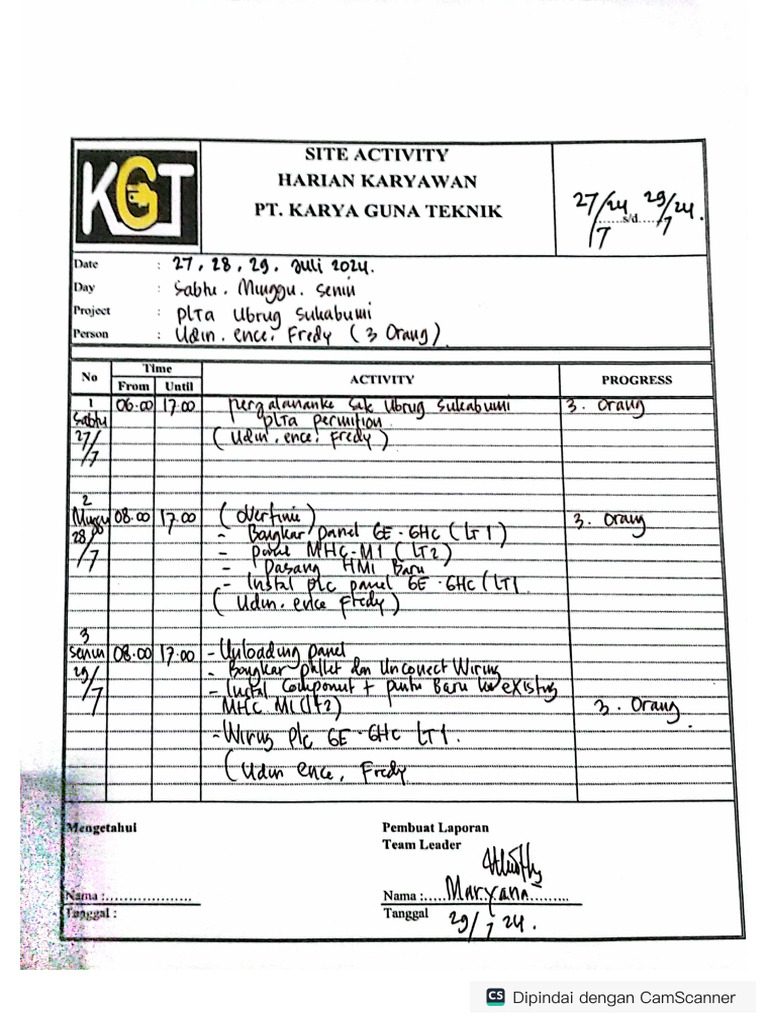 KGT
SITE ACTIVITY
HARIAN KARYAWAN
PT. KARYA GUNA TEKNIK
27/7 24 s/d 29/7 24.
Date : 27, 28, 29, Juli 2024.
Day : Sabtu. Minggu. Senin
Project : PLTA Ubrug Sukabumi
Person : Udin. ence. Fredy (3 Orang)
No Time ACTIVITY PROGRESS
From Until
1 06.00 17.00 ke Ubrug Sukabumi 3. Orang
Sabtu PLTA
27/7 (Udin. ence. Fredy)
2
Minggu 08.00 17.00 (overtime) 3. Orang
28/7 - Bongkar panel GE-GHC (LT1)
- panel MHC-M1 (LT2)
- Pasang HMI Baru
- Instal plc panel GE-GHC (LT1
(Udin. ence Fredy)
3
Senin 08.00 17.00 - Unloading panel
29/7 - Bongkar pallet dan Unconect Wiring
- Instal Component + pintu Baru ke existing
MHC M1 (lt2) 3. Orang
- Wiring plc GE-GHC LT1.
(Udin ence, Fredy
Mengetahui Pembuat Laporan
Team Leader
Nama :.................. Nama :.....Maryana.........
Tanggal : Tanggal 29/7 24.
CS Dipindai dengan CamScanner